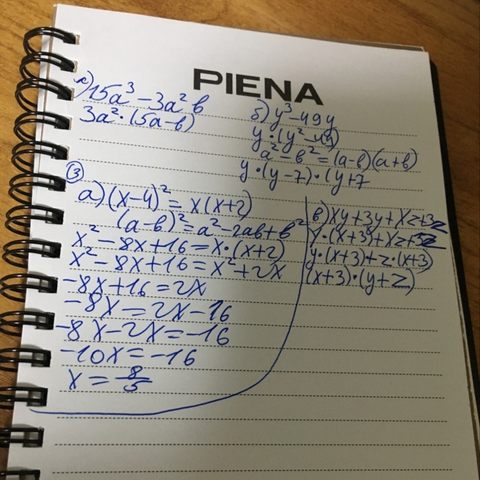 PIENA
а) 15a³ - 3a²b
3a²·(5a-b)
б) y³ - 49y
y·(y²-49)
a²-b²=(a-b)(a+b)
y·(y-7)·(y+7
③
а) (x-4)² = x(x+2)
(a-b)²=a²-2ab+b²
x²-8x+16=x·(x+2)
x²-8x+16=x²+2x
-8x+16=2x
-8x=2x-16
-8x-2x=-16
-10x=-16
x=8/5
в) xy+3y+xz+3z
y·(x+3)+xz+3z
y·(x+3)+z·(x+3)
(x+3)·(y+z)